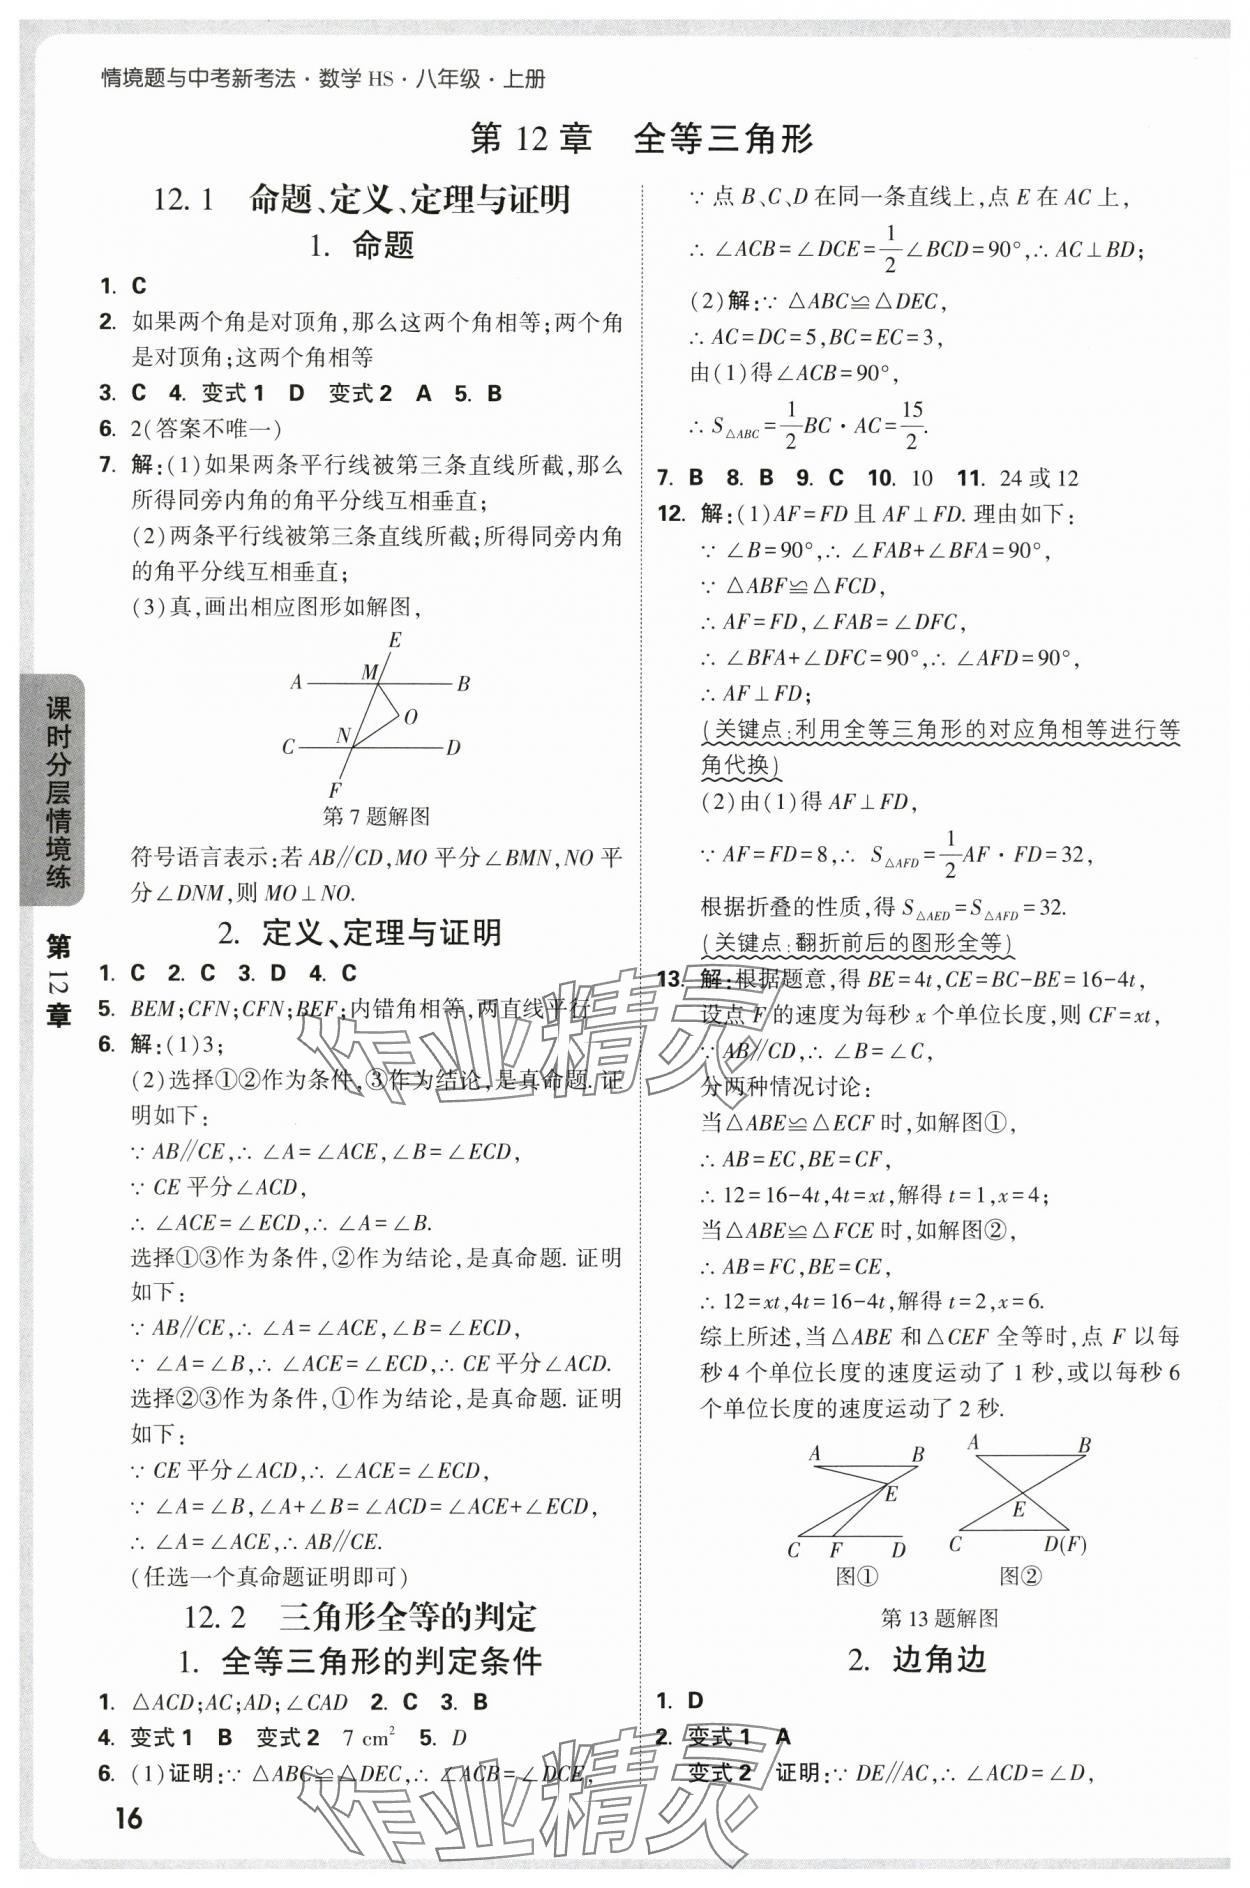 情境题与中考新考法·数学 HS·八年级·上册
第 12 章 全等三角形
12. 1 命题、定义、定理与证明
1. 命题
1. C
2. 如果两个角是对顶角,那么这两个角相等;两个角
是对顶角;这两个角相等
3. C 4. 变式 1 D 变式 2 A 5. B
6. 2(答案不唯一)
7. 解:(1)如果两条平行线被第三条直线所截,那么
所得同旁内角的角平分线互相垂直;
(2)两条平行线被第三条直线所截;所得同旁内角
的角平分线互相垂直;
(3)真,画出相应图形如解图,
E
A M B
O
C N D
F
第 7 题解图
符号语言表示:若 AB∥CD,MO 平分∠BMN,NO 平
分∠DNM,则 MO⊥NO.
2. 定义、定理与证明
1. C 2. C 3. D 4. C
5. BEM;CFN;CFN;BEF;内错角相等,两直线平行
6. 解:(1)3;
(2)选择①②作为条件,③作为结论,是真命题. 证
明如下:
∵ AB∥CE,∴ ∠A=∠ACE,∠B=∠ECD,
∵ CE 平分∠ACD,
∴ ∠ACE=∠ECD,∴ ∠A=∠B.
选择①③作为条件,②作为结论,是真命题. 证明
如下:
∵ AB∥CE,∴ ∠A=∠ACE,∠B=∠ECD,
∵ ∠A=∠B,∴ ∠ACE=∠ECD,∴ CE 平分∠ACD.
选择②③作为条件,①作为结论,是真命题. 证明
如下:
∵ CE 平分∠ACD,∴ ∠ACE=∠ECD,
∵ ∠A=∠B,∠A+∠B=∠ACD=∠ACE+∠ECD,
∴ ∠A=∠ACE,∴ AB∥CE.
(任选一个真命题证明即可)
12. 2 三角形全等的判定
1. 全等三角形的判定条件
1. △ACD;AC;AD;∠CAD 2. C 3. B
4. 变式 1 B 变式 2 7 cm² 5. D
6. (1)证明:∵ △ABC≌△DEC,∴ ∠ACB=∠DCE,
∵ 点 B、C、D 在同一条直线上,点 E 在 AC 上,
∴ ∠ACB=∠DCE=1/2∠BCD=90°,∴ AC⊥BD;
(2)解:∵ △ABC≌△DEC,
∴ AC=DC=5,BC=EC=3,
由(1)得∠ACB=90°,
∴ S△ABC=1/2BC·AC=15/2.
7. B 8. B 9. C 10. 10 11. 24 或 12
12. 解:(1)AF=FD 且 AF⊥FD. 理由如下:
∵ ∠B=90°,∴ ∠FAB+∠BFA=90°,
∵ △ABF≌△FCD,
∴ AF=FD,∠FAB=∠DFC,
∴ ∠BFA+∠DFC=90°,∴ ∠AFD=90°,
∴ AF⊥FD;
(关键点:利用全等三角形的对应角相等进行等
角代换)
(2)由(1)得 AF⊥FD,
∵ AF=FD=8,∴ S△AFD=1/2AF·FD=32,
根据折叠的性质,得 S△AED=S△AFD=32.
(关键点:翻折前后的图形全等)
13. 解:根据题意,得 BE=4t,CE=BC-BE=16-4t,
设点 F 的速度为每秒 x 个单位长度,则 CF=xt,
∵ AB∥CD,∴ ∠B=∠C,
分两种情况讨论:
当△ABE≌△ECF 时,如解图①,
∴ AB=EC,BE=CF,
∴ 12=16-4t,4t=xt,解得 t=1,x=4;
当△ABE≌△FCE 时,如解图②,
∴ AB=FC,BE=CE,
∴ 12=xt,4t=16-4t,解得 t=2,x=6.
综上所述,当△ABE 和△CEF 全等时,点 F 以每
秒 4 个单位长度的速度运动了 1 秒,或以每秒 6
个单位长度的速度运动了 2 秒.
A B A B
E E
C F D C D(F)
图① 图②
第 13 题解图
2. 边角边
1. D
2. 变式 1 A
变式 2 证明:∵ DE∥AC,∴ ∠ACD=∠D,
课时分层情境练
第 12 章
16
作业精灵
作业精灵